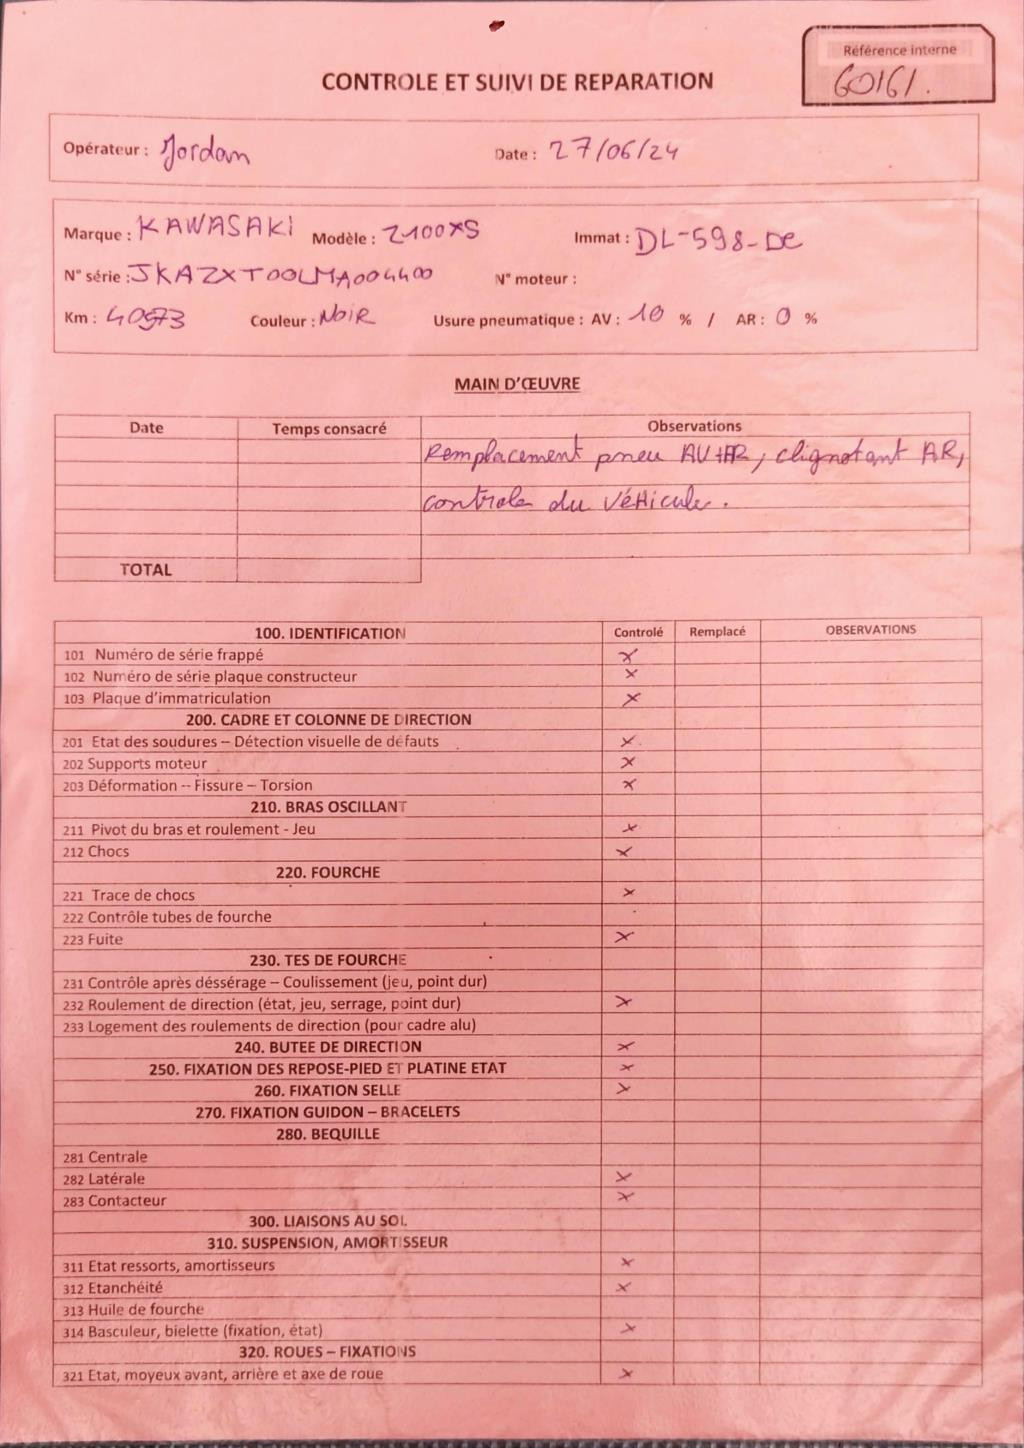 Référence interne
60161.
CONTROLE ET SUIVI DE REPARATION
Opérateur : Jordan Date : 27/06/24
Marque : KAWASAKI Modèle : Z1000XS Immat : DL-598-DC
N° série : JKAZXT00LMA004400 N° moteur :
Km : 40573 Couleur : NOIR Usure pneumatique : AV : 10 % / AR : 0 %
MAIN D'ŒUVRE
Date Temps consacré Observations
Remplacement pneu AV+AR, clignotant AR,
controle du véHicule.
TOTAL
100. IDENTIFICATION Controlé Remplacé OBSERVATIONS
101 Numéro de série frappé X
102 Numéro de série plaque constructeur X
103 Plaque d'immatriculation X
200. CADRE ET COLONNE DE DIRECTION
201 Etat des soudures – Détection visuelle de défauts X
202 Supports moteur X
203 Déformation -- Fissure – Torsion X
210. BRAS OSCILLANT
211 Pivot du bras et roulement - Jeu X
212 Chocs X
220. FOURCHE
221 Trace de chocs X
222 Contrôle tubes de fourche
223 Fuite X
230. TES DE FOURCHE
231 Contrôle après déssérage – Coulissement (jeu, point dur)
232 Roulement de direction (état, jeu, serrage, point dur) X
233 Logement des roulements de direction (pour cadre alu)
240. BUTEE DE DIRECTION X
250. FIXATION DES REPOSE-PIED ET PLATINE ETAT X
260. FIXATION SELLE X
270. FIXATION GUIDON – BRACELETS
280. BEQUILLE
281 Centrale
282 Latérale X
283 Contacteur X
300. LIAISONS AU SOL
310. SUSPENSION, AMORTISSEUR
311 Etat ressorts, amortisseurs X
312 Etanchéité X
313 Huile de fourche
314 Basculeur, bielette (fixation, état) X
320. ROUES – FIXATIONS
321 Etat, moyeux avant, arrière et axe de roue X